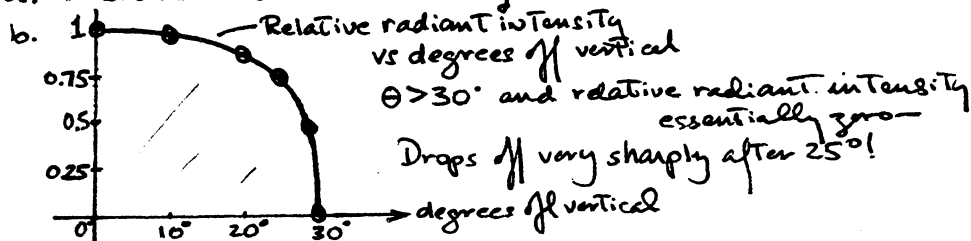 b. 1 Relative radiant intensity
vs degrees off vertical
0.75
θ>30° and relative radiant intensity
essentially zero—
0.5
Drops off very sharply after 25°!
0.25
degrees off vertical
0° 10° 20° 30°